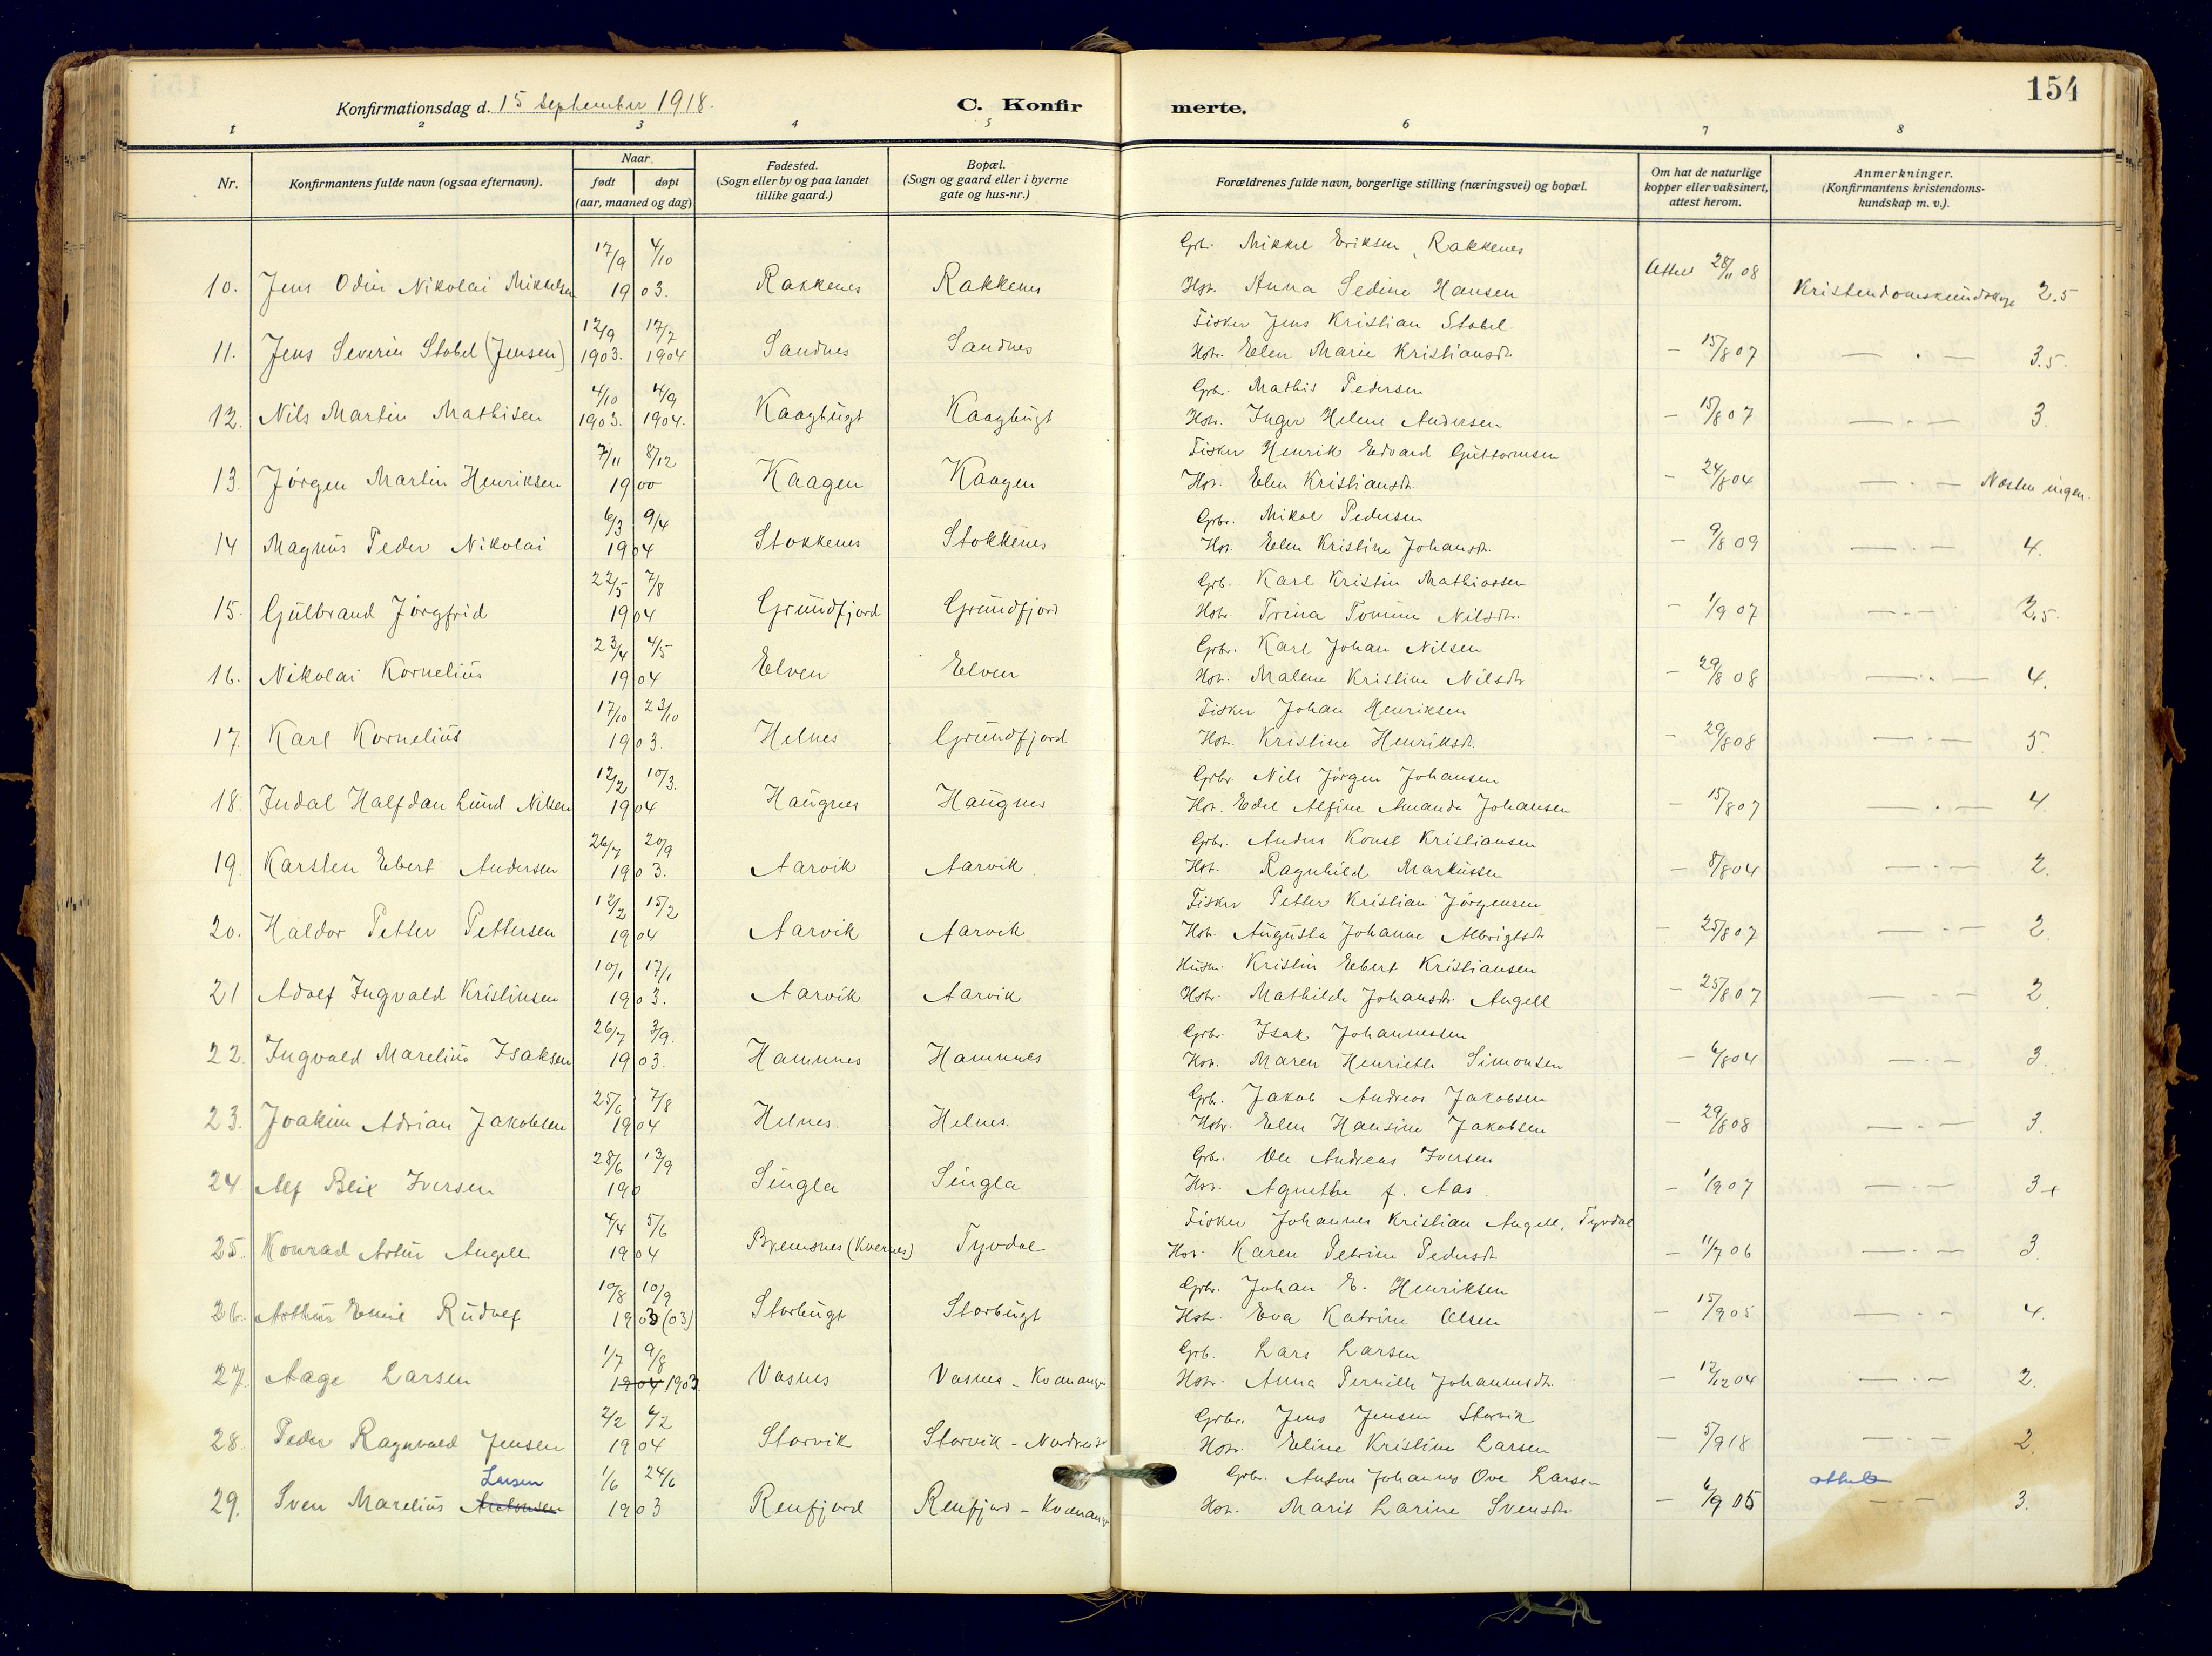 154
Konfirmationsdag d. 15 September 1918.
C. Konfir merte.
1 2 3 4 5 6 7 8
Nr.
Konfirmantens fulde navn (ogsaa efternavn).
Naar
født døpt
(aar, maaned og dag)
Fødested.
(Sogn eller by og paa landet
tillike gaard.)
Bopæl.
(Sogn og gaard eller i byerne
gate og hus-nr.)
Forældrenes fulde navn, borgerlige stilling (næringsvei) og bopæl.
Om hat de naturlige
kopper eller vaksinert,
attest herom.
Anmerkninger.
(Konfirmantens kristendoms-
kundskap m. v.).
17/9 4/10 Grb. Mikkel Eriksen, Rakkenes
10. Jens Odin Nikolai Mikkelsen 1903. Rakkenes Rakkenes Hstr. Anna Sedine Hansen Attest 28/11 08 Kristendomskundskap 2.5
12/9 17/7 Fisker Jens Kristian Stabel
11. Jens Severin Stabel (Jensen) 1903. 1904 Sandnes Sandnes Hstr. Elen Marie Kristiansdtr. — 15/8 07 — . — 3.5.
4/10 4/9 Grb. Mathis Pedersen
12. Nils Martin Mathisen 1903. 1904. Kaagbugt Kaagbugt Hstr. Inger Helene Andersen — 15/8 07 — . — 3.
7/11 8/12 Fisker Henrik Edvard Guttormsen
13. Jörgen Martin Henriksen 1900 Kaagen Kaagen Hst. Elen Kristiansdtr. — 24/8 04 — . — Næsten ingen.
6/3 9/4 Grbr. Mikal Pedersen
14 Magnus Peder Nikolai 1904 Stokkenes Stokkenes Hst. Elen Kristine Johansdtr. — 9/8 09 — . — 4.
22/5 7/8 Grb. Karl Kristin Mathiassen
15. Gulbrand Jörgfrid 1904 Grundfjord Grundfjord Hstr. Trina Tomine Nilsdtr. — 1/9 07 — . — 2.5.
23/4 4/5 Grbr. Karl Johan Nilsen
16. Nikolai Kornelius 1904 Elven Elven Hst. Malene Kristine Nilsdtr — 29/8 08 — . — 4.
17/10 23/10 Fisker Johan Henriksen
17. Karl Kornelius 1903. Helnes Grundfjord Hst. Kristine Henriksdtr. — 29/8 08 — . — 5.
12/2 10/3. Grbr. Nils Jörgen Johansen
18. Indal Halfdan Lund Nilsen 1904 Haugnes Haugnes Hst. Edel Alfine Amanda Johansen — 15/8 07 — . — 4.
26/7 20/9 Grbr. Anders Konst Kristiansen
19. Karsten Ebert Andersen 1903. Aarvik Aarvik. Hst. Ragnhild Markussen — 8/8 04 — . — 2.
12/2 15/2 Fisker Petter Kristian Jörgensen
20. Haldor Petter Pettersen 1904 Aarvik Aarvik Hst. Augusta Johanne Albrigtsdtr — 25/8 07 — . — 2.
10/1 17/1 Husm. Kristin Ebert Kristiansen
21 Adolf Ingvald Kristinsen 1903. Aarvik Aarvik Hstr. Mathilde Johansdtr. Angell — 25/8 07 — . — 2.
26/7 3/9. Grbr. Isak Johannessen
22. Ingvald Marelius Isaksen 1903. Hamnnes Hamnnes Hst. Maren Henriette Simonsen — 6/8 04 — . — 3.
25/6 7/8 Grb. Jakob Andreas Jakobsen
23. Joakim Adrian Jakobsen 1904 Helnes. Helnes. Hstr. Elen Hansine Jakobsen — 29/8 08 — . — 3.
28/6 13/9 Grbr. Ole Andreas Iversen
24. Alf Blix Iversen 190 Singla Singla Hst. Agnethe f. Aas. — 1/9 07 — . — 3+
4/4 5/6 Fisker Johannes Kristian Angell, Tyvdal
25. Konrad Artur Angell 1904 Bremsnes (Kvernes) Tyvdal Hst. Karen Petrine Pedersdtr — 11/7 06 — . — 3.
10/8 10/9 Grbr. Johan E. Henriksen
26. Arthur Emil Rudolf 1903 (03) Storbugt Storbugt Hst. Eva Katrine Olsen — 15/9 05 — . — 4.
1/7 9/8 Grb. Lars Larsen
27. Aage Larsen 1904 1903. Vasnes Vasnes - Kvænang Hstr. Anna Pernille Johannesdtr. — 12/12 04 — . — 2.
2/2 6/2 Grbr. Jens Jensen Storvik
28. Peder Ragnvald Jensen 1904 Storvik Storvik - Nordreisa Hstr. Eline Kristine Larsen — 5/9 18 — . — 2.
Larsen 1/6 24/6 Grbr. Anton Johannes Ove Larsen attest
29. Sven Marelius Antonsen 1903 Renfjord Renfjord - Kvænang Hst. Marit Larine Svensdtr. — 6/9 05 — . — 3.